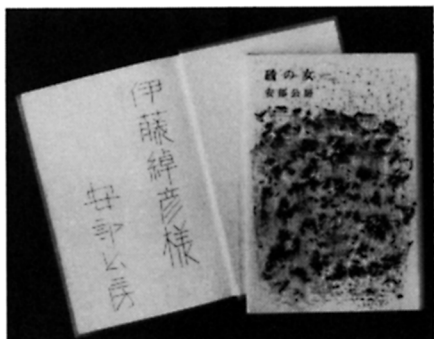 伊藤綽彦様
安部公房
砂の女
安部公房